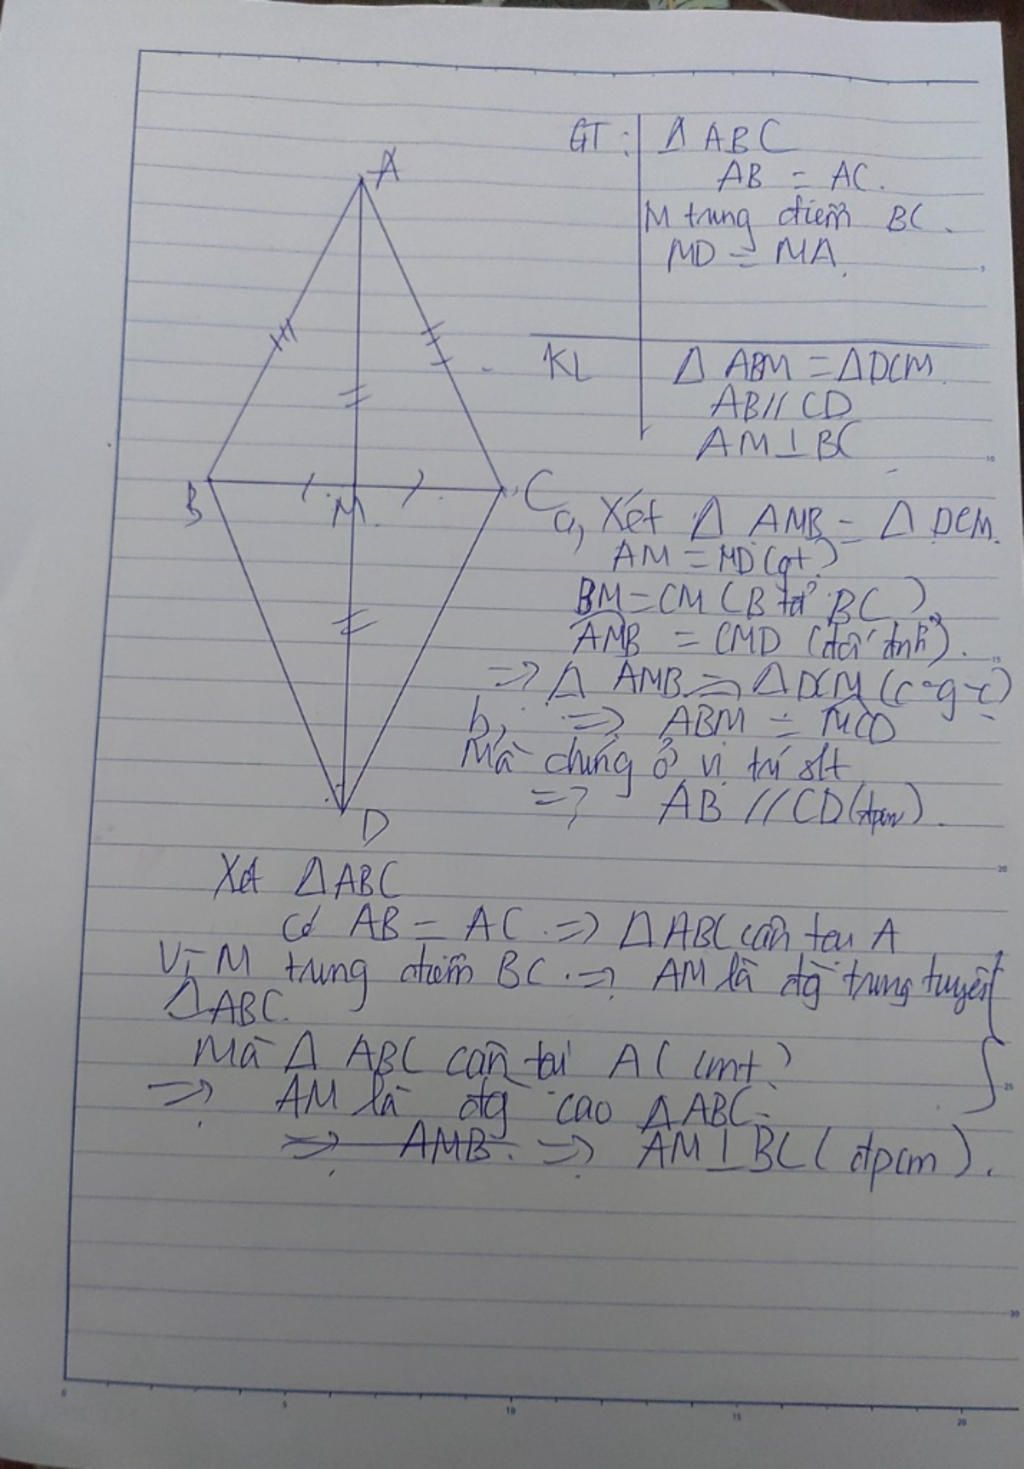 A
B
M
C
D
GT : Δ ABC
AB = AC.
M trung điểm BC.
MD = MA.
KL Δ ABM = ΔDCM
AB // CD
AM ⊥ BC
a, Xét Δ AMB = Δ DCM.
AM = MD (gt)
BM = CM ( BC )
AMB = CMD (đối đỉnh).
=> Δ AMB = ΔDCM (c-g-c)
b, => ABM = MCD
Mà chúng ở vị trí slt
=> AB // CD (đpcm).
Xét ΔABC
Có AB = AC => ΔABC cân tại A
Vì M trung điểm BC => AM là đg trung tuyến
ΔABC.
Mà Δ ABC cân tại A (cmt)
=> AM là đg cao ΔABC.
=> AMB. => AM ⊥ BC (đpcm).
0 5 10 15 20
5
10
15
20
25
30